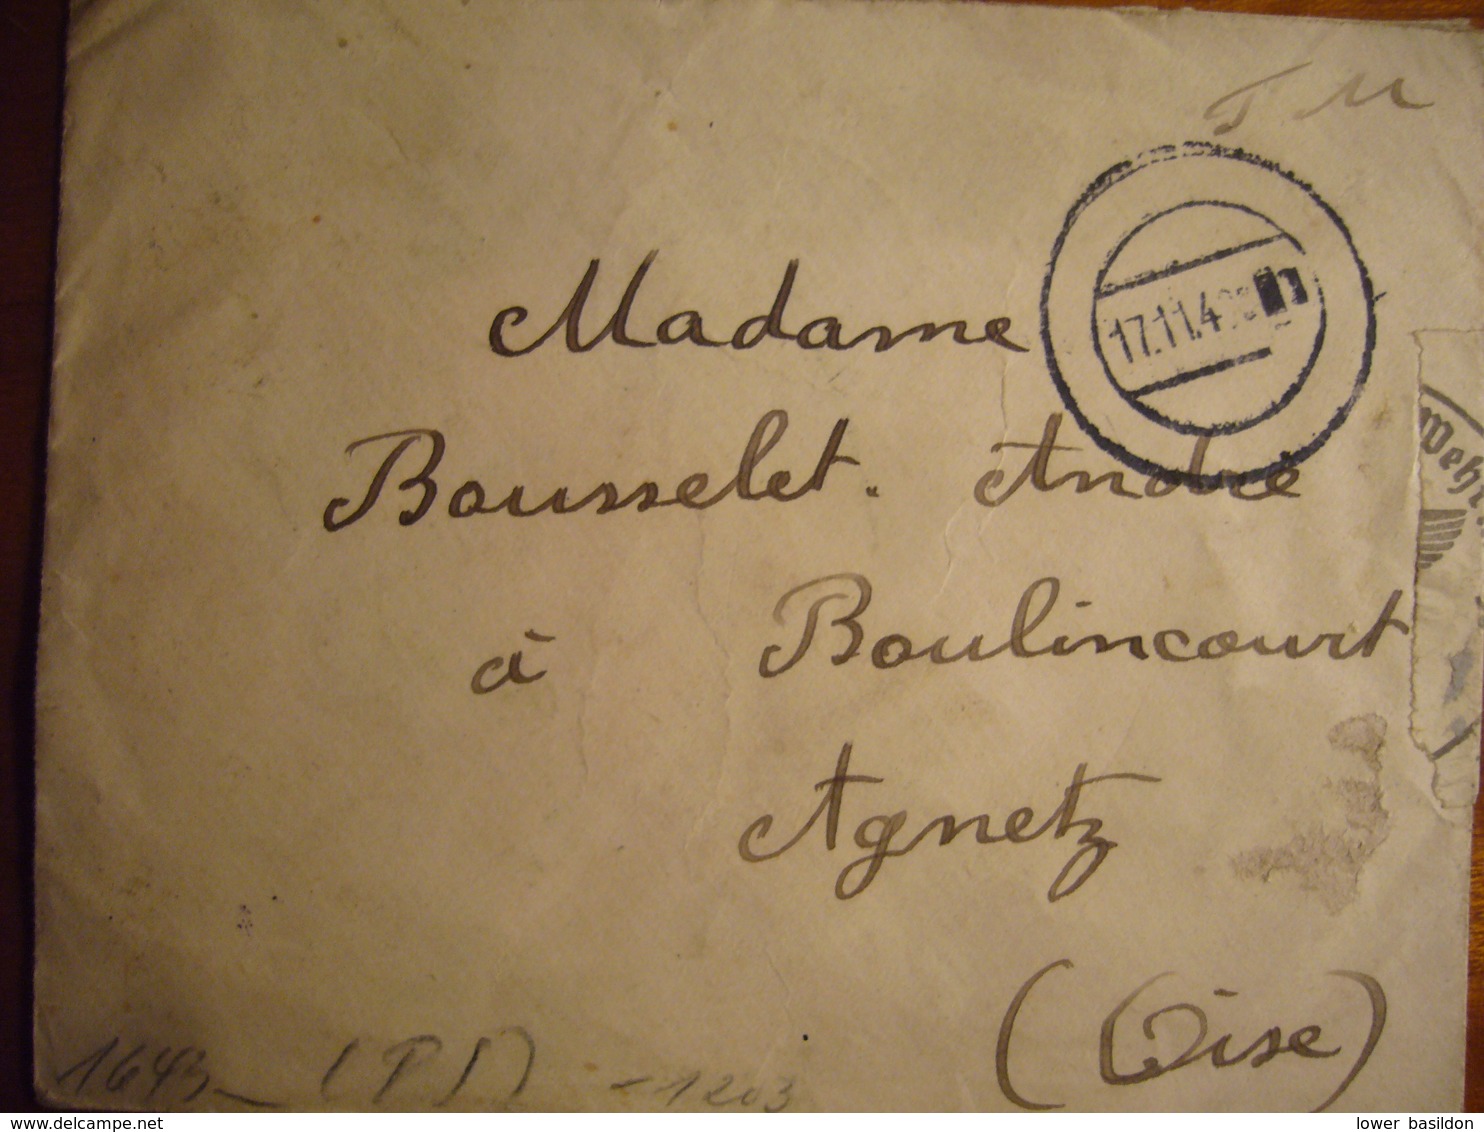 F M
17.11.4
Madame
Bousselet. André
à Boulincourt
Agnetz
(Oise)
Weh
1643 (PS) - 1203
lower basildon